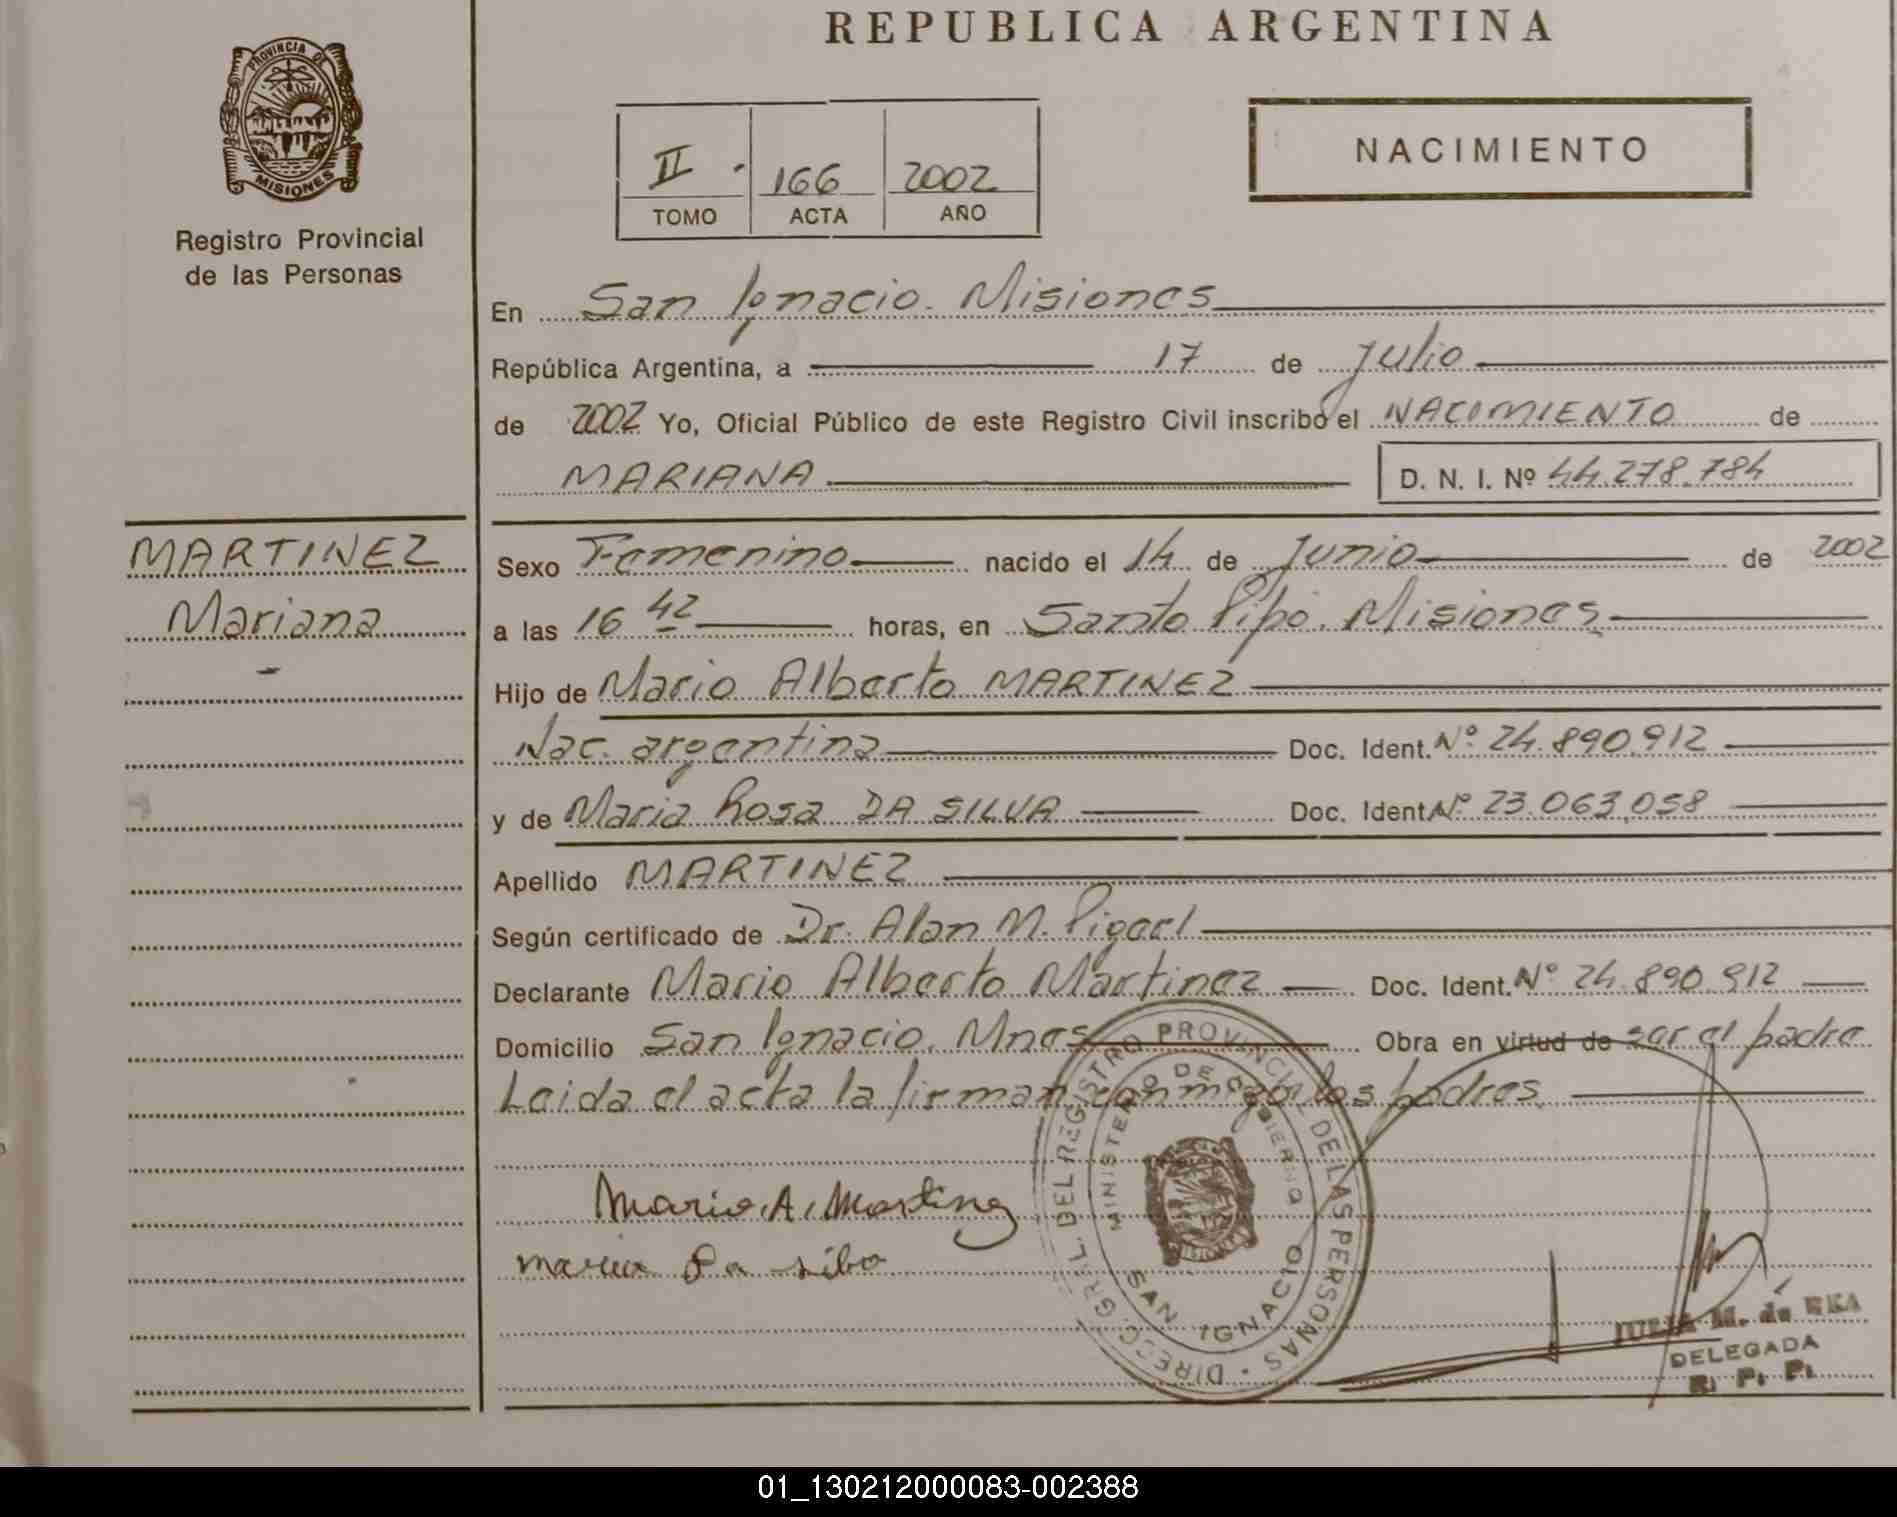 REPUBLICA ARGENTINA
PROVINCIA DE
MISIONES
Registro Provincial
de las Personas
II. 166 2002
TOMO ACTA AÑO
NACIMIENTO
En San Ignacio. Misiones
República Argentina, a 17 de Julio
de 2002 Yo, Oficial Público de este Registro Civil inscribo el NACIMIENTO de
MARIANA D. N. I. Nº 44.278.784
MARTINEZ
Mariana
Sexo Femenino nacido el 14 de Junio de 2002
a las 16 42 horas, en Santo Pipó. Misiones
Hijo de Mario Alberto MARTINEZ
Nac. argentina Doc. Ident. Nº 24.890.912
y de Maria Rosa DA SILVA Doc. Ident. Nº 23.063.058
Apellido MARTINEZ
Según certificado de Dr. Alan M.
Declarante Mario Alberto Martinez Doc. Ident. Nº 24.890.912
Domicilio San Ignacio. Mnes Obra en virtud de ser el padre
Leida el acta la firman conmigo los padres.
Mario. A. Martinez
maria Da silva
DIRECC. GRAL. DEL REGISTRO PROVINCIAL DE LAS PERSONAS
MINISTERIO DE GOBIERNO
MISIONES
SAN IGNACIO
JULIA M. de
DELEGADA
R. P. P.
01_130212000083-002388